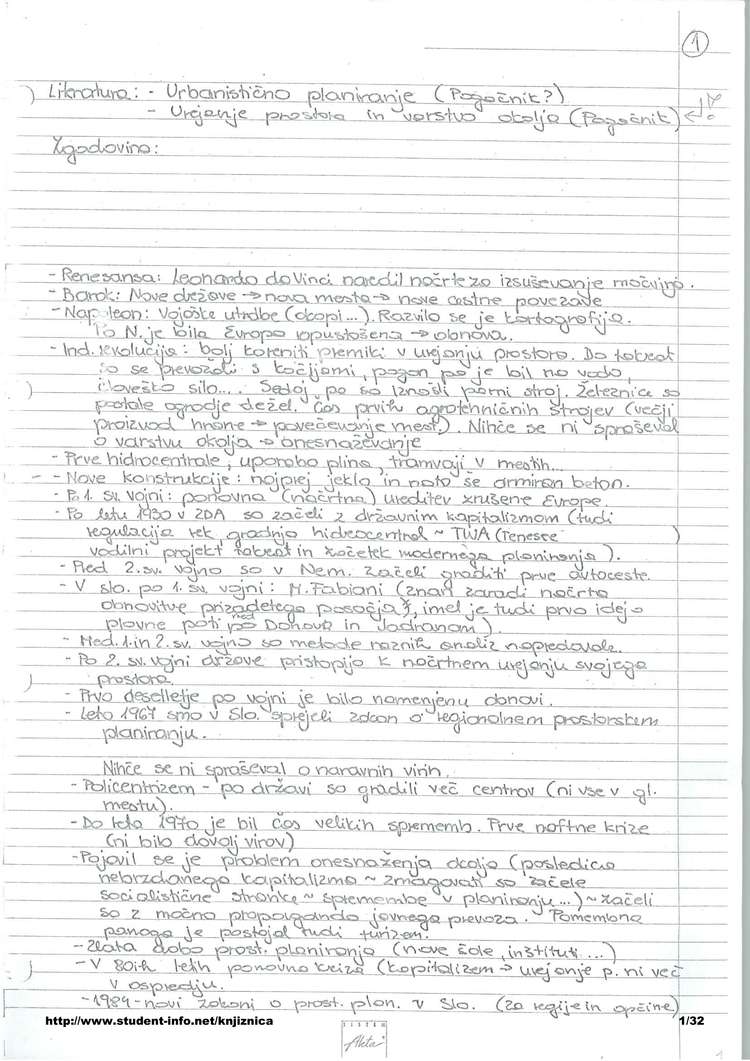 1
Literatura: - Urbanistično planiranje (Pogačnik?)
- Urejanje prostora in varstvo okolja (Pogačnik)
Zgodovina:
- Renesansa: Leonardo da Vinci naredil načrte za izsuševanje močvirja.
- Barok: Nove države → nova mesta → nove cestne povezave
- Napoleon: Vojaške utrdbe (okopi...). Razvilo se je kartografija.
Po N. je bila Evropa opustošena → obnova.
- Ind. revolucija: bolj koreniti premiki v urejanju prostora. Do takrat
so se prevozali s kočijami, pogon pa je bil na vodo,
človeško silo... Sedaj pa so iznašli parni stroj. Železnica so
postale ogrodje dežel. Čas prvih agrotehničnih strojev (večji
proizvod hrane → povečevanje mest). Nihče se ni spraševal
o varstvu okolja → onesnaževanje
- Prve hidrocentrale, uporaba plina, tramvaji v mestih...
- Nove konstrukcije: najprej jeklo in nato še armiran beton.
- Po 1. sv. vojni: ponovna (načrtna) ureditev zrušene Evrope.
- Po letu 1930 v ZDA so začeli z državnim kapitalizmom (tudi
regulacija rek, gradnja hidrocentral ~ TWA (Tenesee
vodilni projekt takrat in začetek modernega planiranja).
- Pred 2. sv. vojno so v Nem. začeli graditi prve avtoceste.
- V slo. po 1. sv. vojni: M. Fabiani (znan zaradi načrta
obnovitve prizadetega posočja, imel je tudi prvo idejo
plovne poti med Donavo in Jadranom)
- Med 1. in 2. sv. vojno so metode raznih analiz napredovale.
- Po 2. sv. vojni države pristopijo k načrtnem urejanju svojega
prostora.
- Prvo desetletje po vojni je bilo namenjenu obnovi.
- Leta 1967 smo v Slo. sprejeli zakon o regionalnem prostorskem
planiranju.
Nihče se ni spraševal o naravnih virih.
- Policentrizem - po državi so gradili več centrov (ni vse v gl.
mestu).
- Do leta 1970 je bil čas velikih sprememb. Prve naftne krize
(ni bilo dovolj virov)
- Pojavil se je problem onesnaženja okolja (posledica
nebrzdanega kapitalizma ~ zmagovati so začele
socialistične stranke ~ spremembe v planiranju...) ~ začeli
so z močno propagando javnega prevoza. Pomembna
panoga je postajal tudi turizem.
- Zlata doba prost. planiranja (nove šole, inštituti...)
- V 80ih letih ponovna kriza (kapitalizem → urejanje p. ni več
v ospredju.
- 1984 - novi zakoni o prost. plan. v Slo. (za regije in občine)
http://www.student-info.net/knjiznica
1/32
Aleta